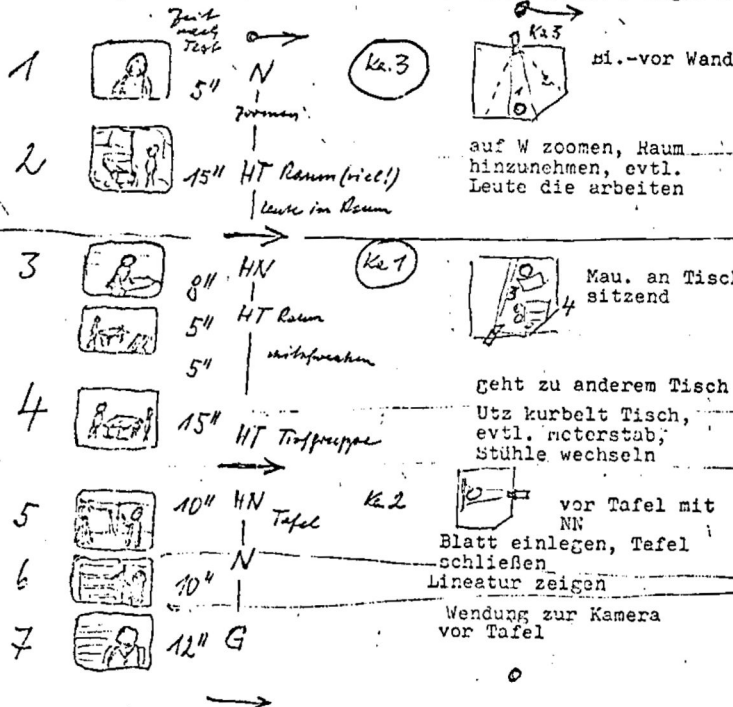 Zeit
nach
Text
1 5" N Ka.3 Ka 3 Bi.-vor Wand
zoomen
2 15" HT Raum (viel!) auf W zoomen, Raum
hinzunehmen, evtl.
Leute in Raum Leute die arbeiten
3 8" HN Ka 1 3 4 Mau. an Tisch
sitzend
5" HT Raum
5" mitschwenken
geht zu anderem Tisch
4 15" HT Tischgruppe Utz kurbelt Tisch,
evtl. meterstab,
Stühle wechseln
5 10" HN Tafel Ka 2 vor Tafel mit
NN
Blatt einlegen, Tafel
schließen
6 10" N Lineatur zeigen
7 12" G Wendung zur Kamera
vor Tafel